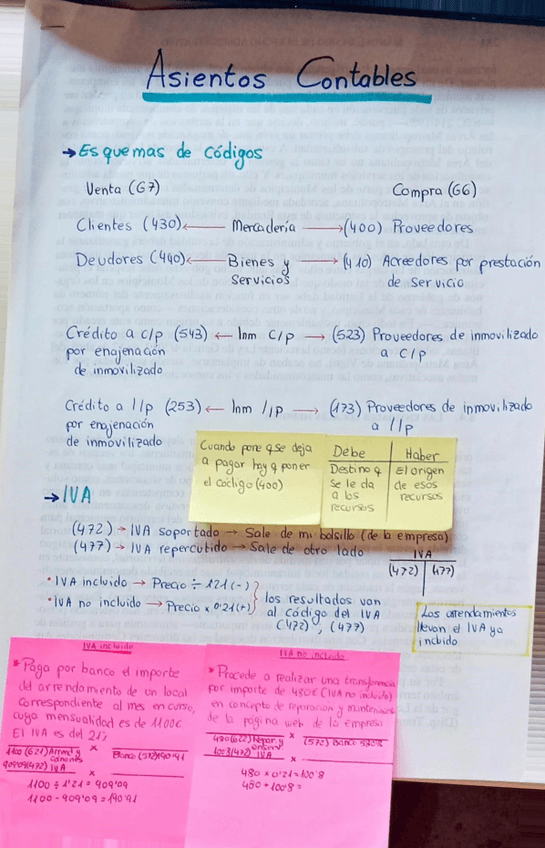 Asientos Contables
→ Esquemas de códigos
Venta (G7) Compra (G6)
Clientes (430) ← Mercadería → (400) Proveedores
Deudores (440) ← Bienes y → (410) Acreedores por prestación
Servicios de servicio
Crédito a c/p (543) ← Inm c/p → (523) Proveedores de inmovilizado
por enajenación a c/p
de inmovilizado
Crédito a l/p (253) ← Inm l/p → (173) Proveedores de inmovilizado
por enajenación a l/p
de inmovilizado
Cuando pone q se deja
a pagar hay q poner
el código (400)
Debe Haber
Destino q El origen
se le da de esos
a los recursos
recursos
→ IVA
(472) → IVA soportado → Sale de mi bolsillo (de la empresa)
(477) → IVA repercutido → Sale de otro lado
IVA
(472) (477)
• IVA incluido → Precio ÷ 1'21 (-)
• IVA no incluido → Precio x 0'21 (+)
los resultados van
al código del IVA
(472), (477)
Los arrendamientos
llevan el IVA ya
incluido
IVA incluido
* Paga por banco el importe
del arrendamiento de un local
correspondiente al mes en curso,
cuya mensualidad es de 1100€
El IVA es del 21%
1100 (621) Arrend. y x
cánones Banco (572)
(472) IVA x
1100 ÷ 1'21 = 909'09
1100 - 909'09 = 190'91
IVA no incluido
* Procede a realizar una transferencia
por importe de 480€ (IVA no incluido)
en concepto de reparación y
de la página web de la empresa
480 (622) Repar. y x
(572) Banco
(472) IVA x
480 x 0'21 = 100'8
480 + 100'8 =